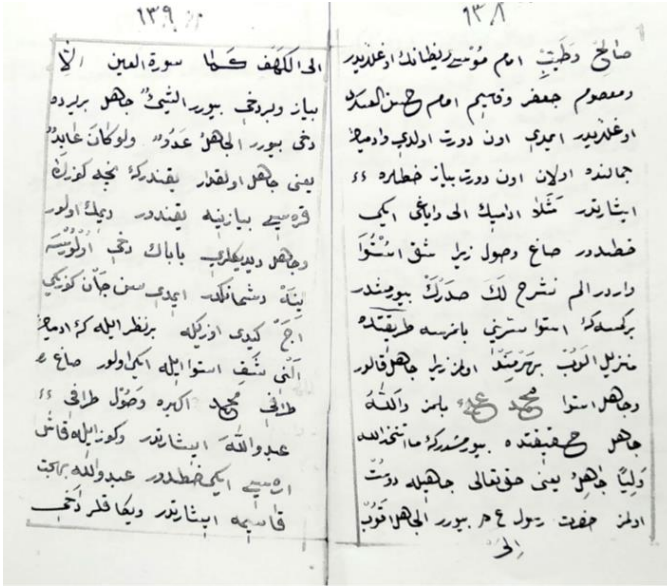 ١٣٨
صالح وطيب امام موسى رضانك اوغللريدر
ومعصوم جعفر وقاسم امام حسن العسكرى
اوغللريدر ايمدى اون دورت اولدى وادميڭ
جمالنده اولان اون دورت بياض خطلره
اشارتدر مثلا ادميك الى داياغى ايكى
خطدر صاغ وصول زيرا شق استوا
واردر الم نشرح لك صدرك بيورمشدر
بركمسه كه استوا سريني بلمزسه طريقتده
منزيل اولوب بهرمند اولمز زيرا جاهل قالور
وجاهل استوا محمد على بلمز والله
جاهل حقيقتده بيورمشدركه ما اتخذ الله
وليا جاهل يعنى حق تعالى جاهله دوست
اولمز حضرت رسول ع م بيورر الجاهل اقرب
الى
١٣٩
الى الكهف كما سورة العين الا
بياز ويردخى بيورر الشئ جاهل بريرده
دخى بيورر الجاهل عدو ولو كان عابد
يعنى جاهل اولقدار يقندركه نجه كوزك
قره سى بيازينه يقندور ديمك اولور
وجاهل ديديكلرى باباك دخى اولورسه
ينه دشمانكدر ايمدى سن جان كوزكى
اچ كيدى اوركله برنظر ايله كه ادميڭ
النى شق استوا ايله ايكى اولور صاغ
طرفى محمد اكبره وصول طرفى
عبدوالله اشارتدر وكوز ايله قاش
اره سى ايكى خطدور عبدوالله بهجت
قاسمه اشارتدر ويكاقلر دخى